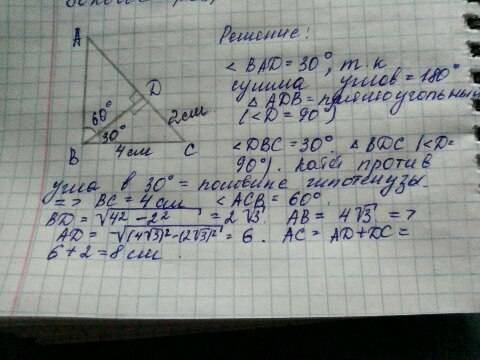 Решение!
A
D
60°
30°
2см
B
4см
C
∠BAD = 30°, т.к
сумма углов = 180°
△ADB = прямоугольный
(∠D = 90°)
∠DBC = 30°. △BDC (∠D=
90°). Катет против
угла в 30° = половине гипотенузы.
=> BC = 4 см ∠ACB = 60°
BD = √4² - 2² = 2√3. AB = 4√3 =>
AD = √(4√3)² - (2√3)² = 6. AC = AD + DC =
6 + 2 = 8 см.